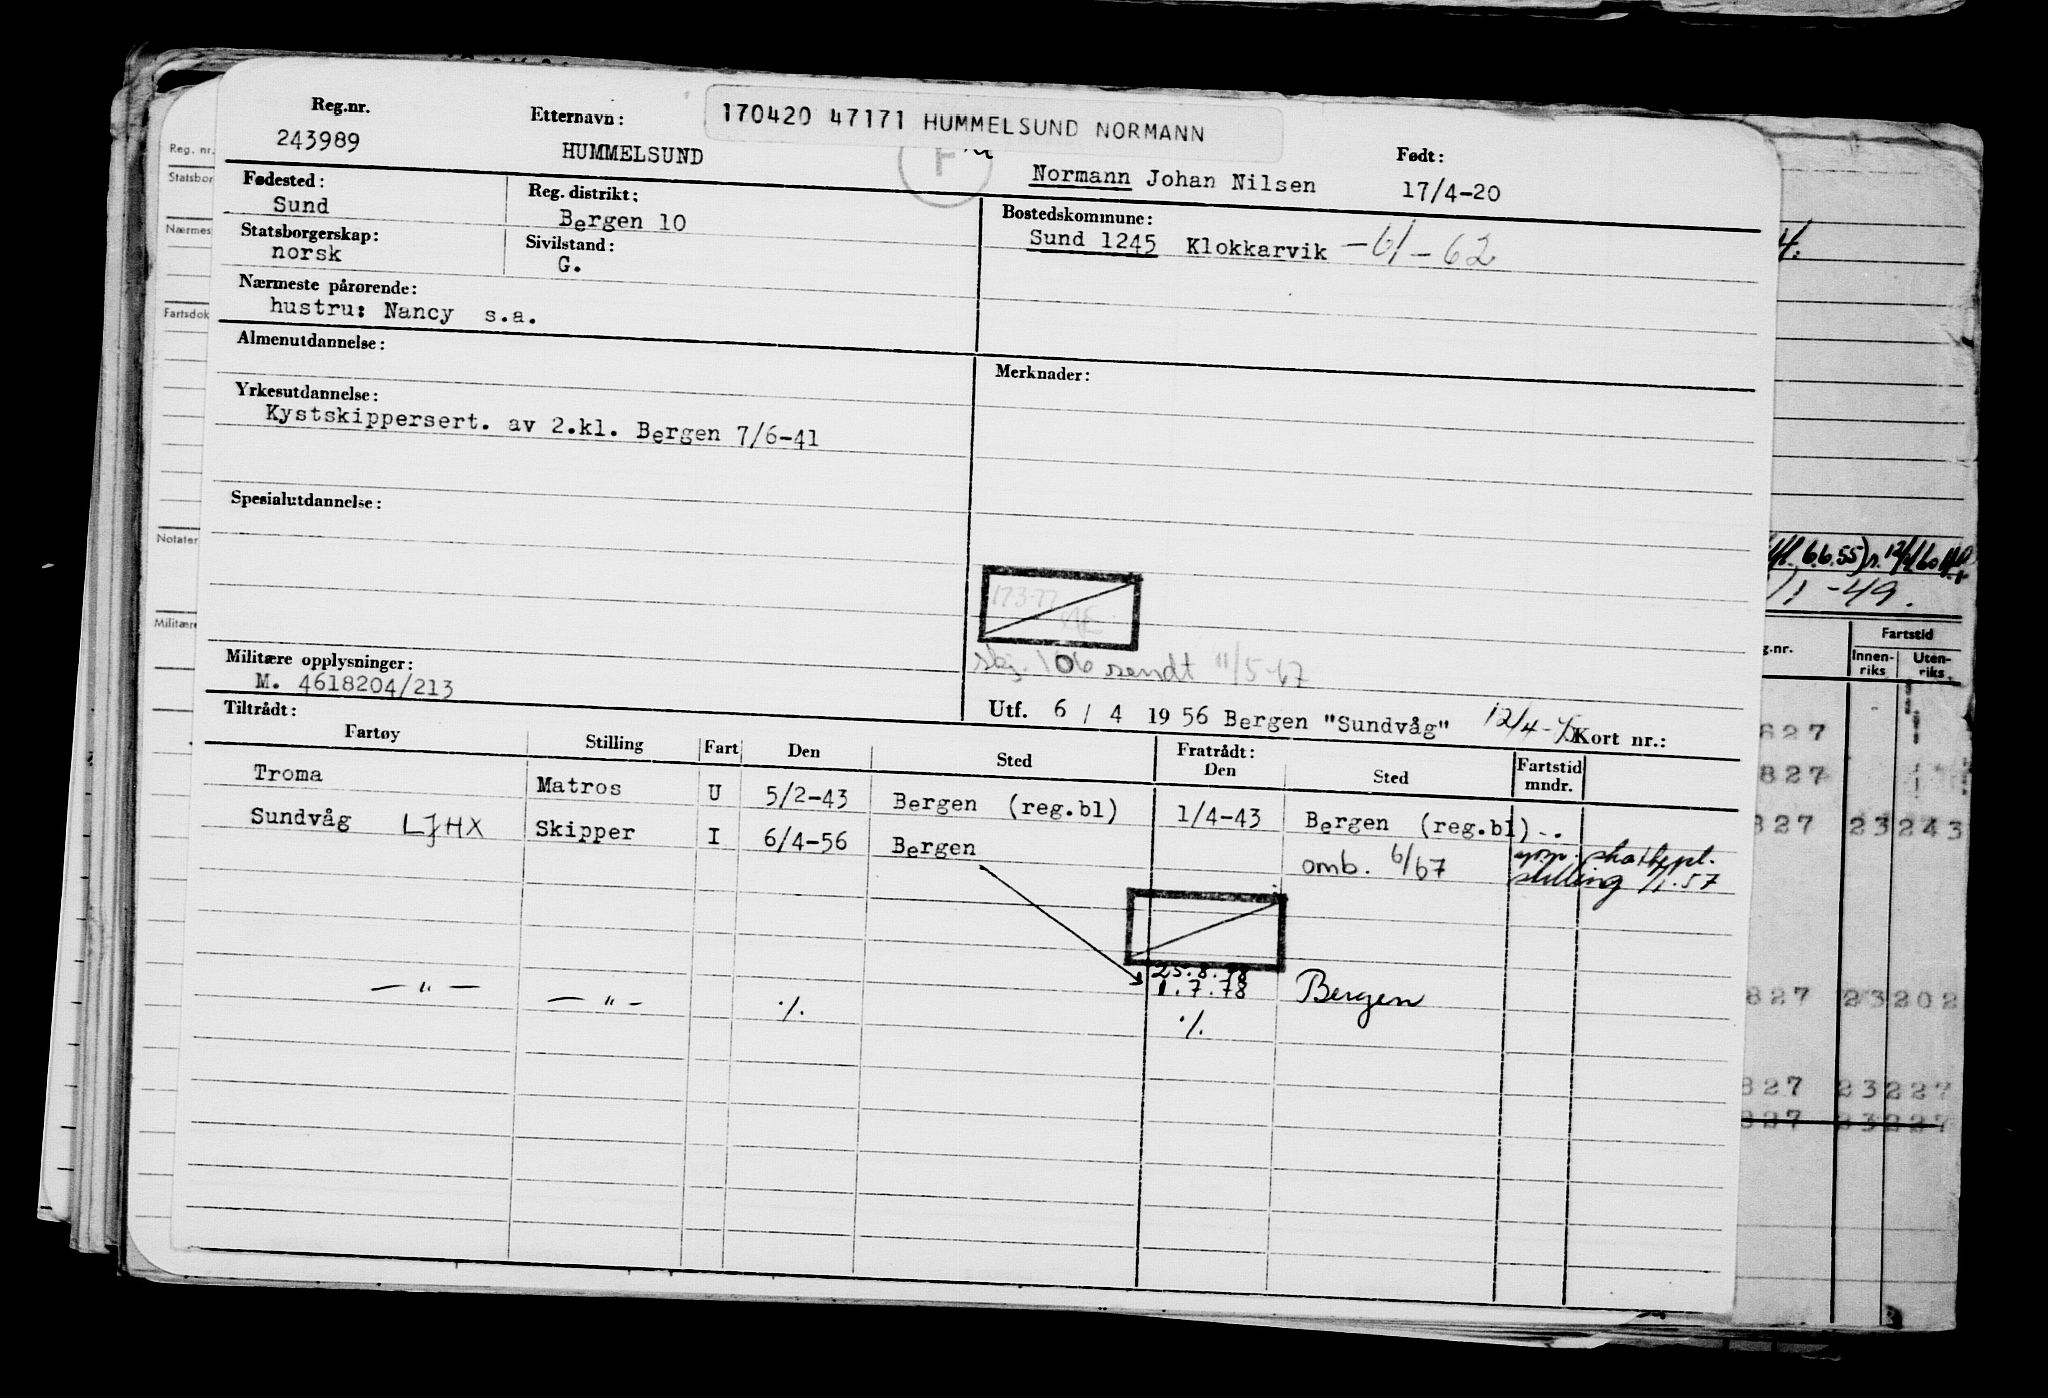 170420 47171 HUMMELSUND NORMANN
Reg.nr. Etternavn: Født:
243989 HUMMELSUND Normann Johan Nilsen 17/4-20
Fødested: Reg. distrikt: Bostedskommune:
Sund Bergen 10 Sund 1245 Klokkarvik -61-62
Statsborgerskap: Sivilstand:
norsk G.
Nærmeste pårørende:
hustru: Nancy s.a.
Almenutdannelse: Merknader:
Yrkesutdannelse:
Kystskippersert. av 2.kl. Bergen 7/6-41
Spesialutdannelse:
17.3.77
106 sendt 11/5-67
Militære opplysninger:
M. 4618204/213
Utf. 6 / 4 19 56 Bergen "Sundvåg" 12/4- Kort nr.:
Tiltrådt: Fratrådt:
Fartøy Stilling Fart Den Sted Den Sted Fartstid mndr.
Troma Matros U 5/2-43 Bergen (reg.bl) 1/4-43 Bergen (reg.bl) - .
Sundvåg LJHX Skipper I 6/4-56 Bergen omb. 6/67 skattepl.
stilling 1/1.57
25.8.78
1.7.78 Bergen
— " — — " — ./. ./.
Reg. nr.
Statsbor
Nærmes
Fartsdok
Notater
Militære
4.
6.6.55)
/1 -49.
g.nr. Fartstid
Innen-riks Uten-riks
627
827
827 23 243
827 23 202
827 23 227
827 23 227